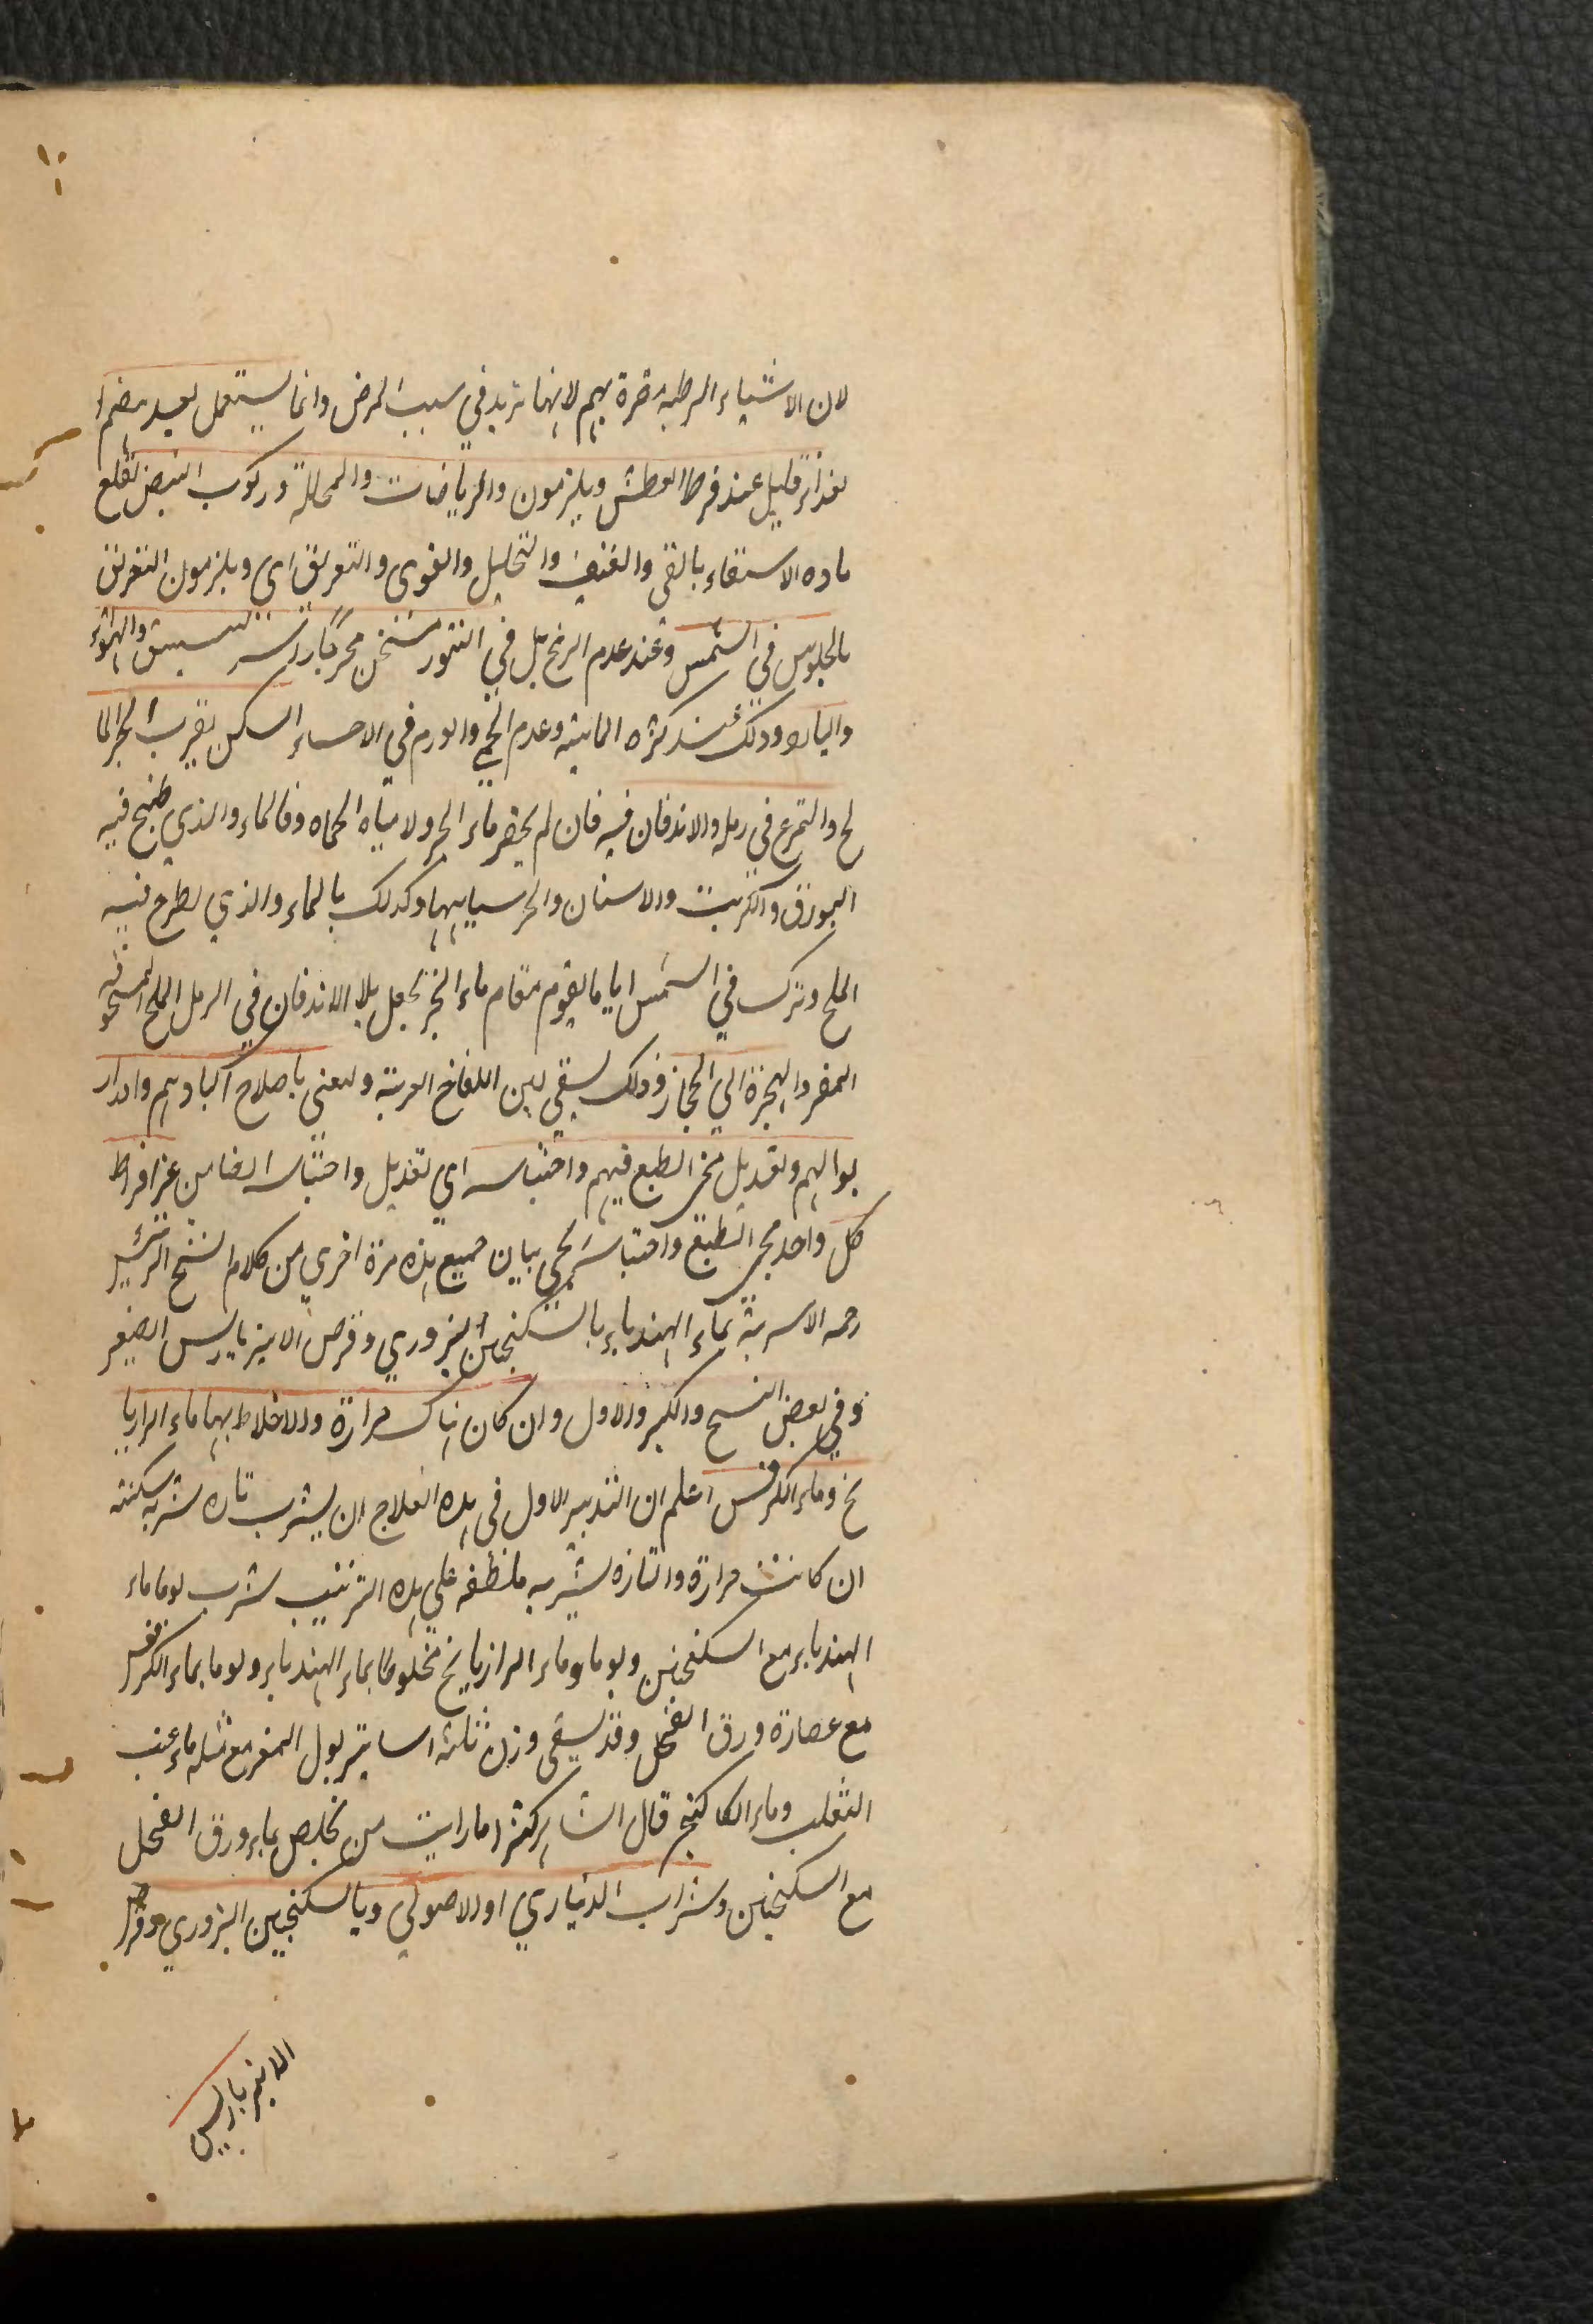 لان الاشياء الرطبه مضرة بهم لانها تزيد في سبب المرض وانما يستعمل بعد هضم ا
لغذا قليل عند فرط العطش ويلزمون والرياضات والمحللة وركوب البيض لقلع
ماده الاستسقاء بالقى والعنيف والتحليل والقوى والتعريق اى ويلزمون التعريق
بالجلوس في الشمس وعند عدم الريح بل في التنور مسخن مخرجا راسه للتنشق والهواء
والبارد وذلك عند كثره المائيه وعدم الحمى والورم في الاحساء السكن بقرب البحر الما
لح والتمرغ في رمله والاندفان فيه فان لم يحضر ماء البحر ولا مياه الحماه وفالماء والذي طبخ فيه
البورق والكبريت والاسنان والخر وكذلك بالماء والذي يطرح فيه
الملح ويترك في الشمس اياما يقوم مقام ماء البحر بلا الاندفان في الرمل الملح المسخونه
المفر والهجرة الي الحجاز وذلك يسقي لبن اللقاح العربية ويعنى باصلاح اكبادهم وادرار
بوالهم وتعديل مجى الطبع فيهم واحتباسه اي تعديل واحتباسه الضامن عن افراط
كل واحد مجى الطبع واحتباسه يجي بيان جميع هذه مرة اخري من كلام الشيخ الرئيس
رحمه الاسربة بماء الهندباء بالسكنجبين البزوري وقرص الانبرباريس الصغير
وفي بعض النسح والكبير والاول وان كان هناك حرارة والاخلاط بهما ماء الرازيا
نج وماء الكرفس اعلم ان التدبير الاول في هذه العلاج ان يشرب تاره شربه مسكنته
ان كانت حرارة والتازه يشربه ملطفه علي هذه الترتيب شرب يوما ماء
الهندباء مع السكنجبين ويوما وماء الرازيانج مخلوطا بماء الهندباء ويوما بماء الكرفس
مع عصارة ورق الفجل وقد يسقى وزن ثلثه اساتير بول المغز مع مثله ماء عنب
الثعلب وماء الكاكنج قال الشاهر كثيرا ما رايت من تخلص بماء ورق الفجل
مع السكنجبين وشراب الديناري او الاصولي وبالسكنجبين البزوري وقرص
الانبرباريس